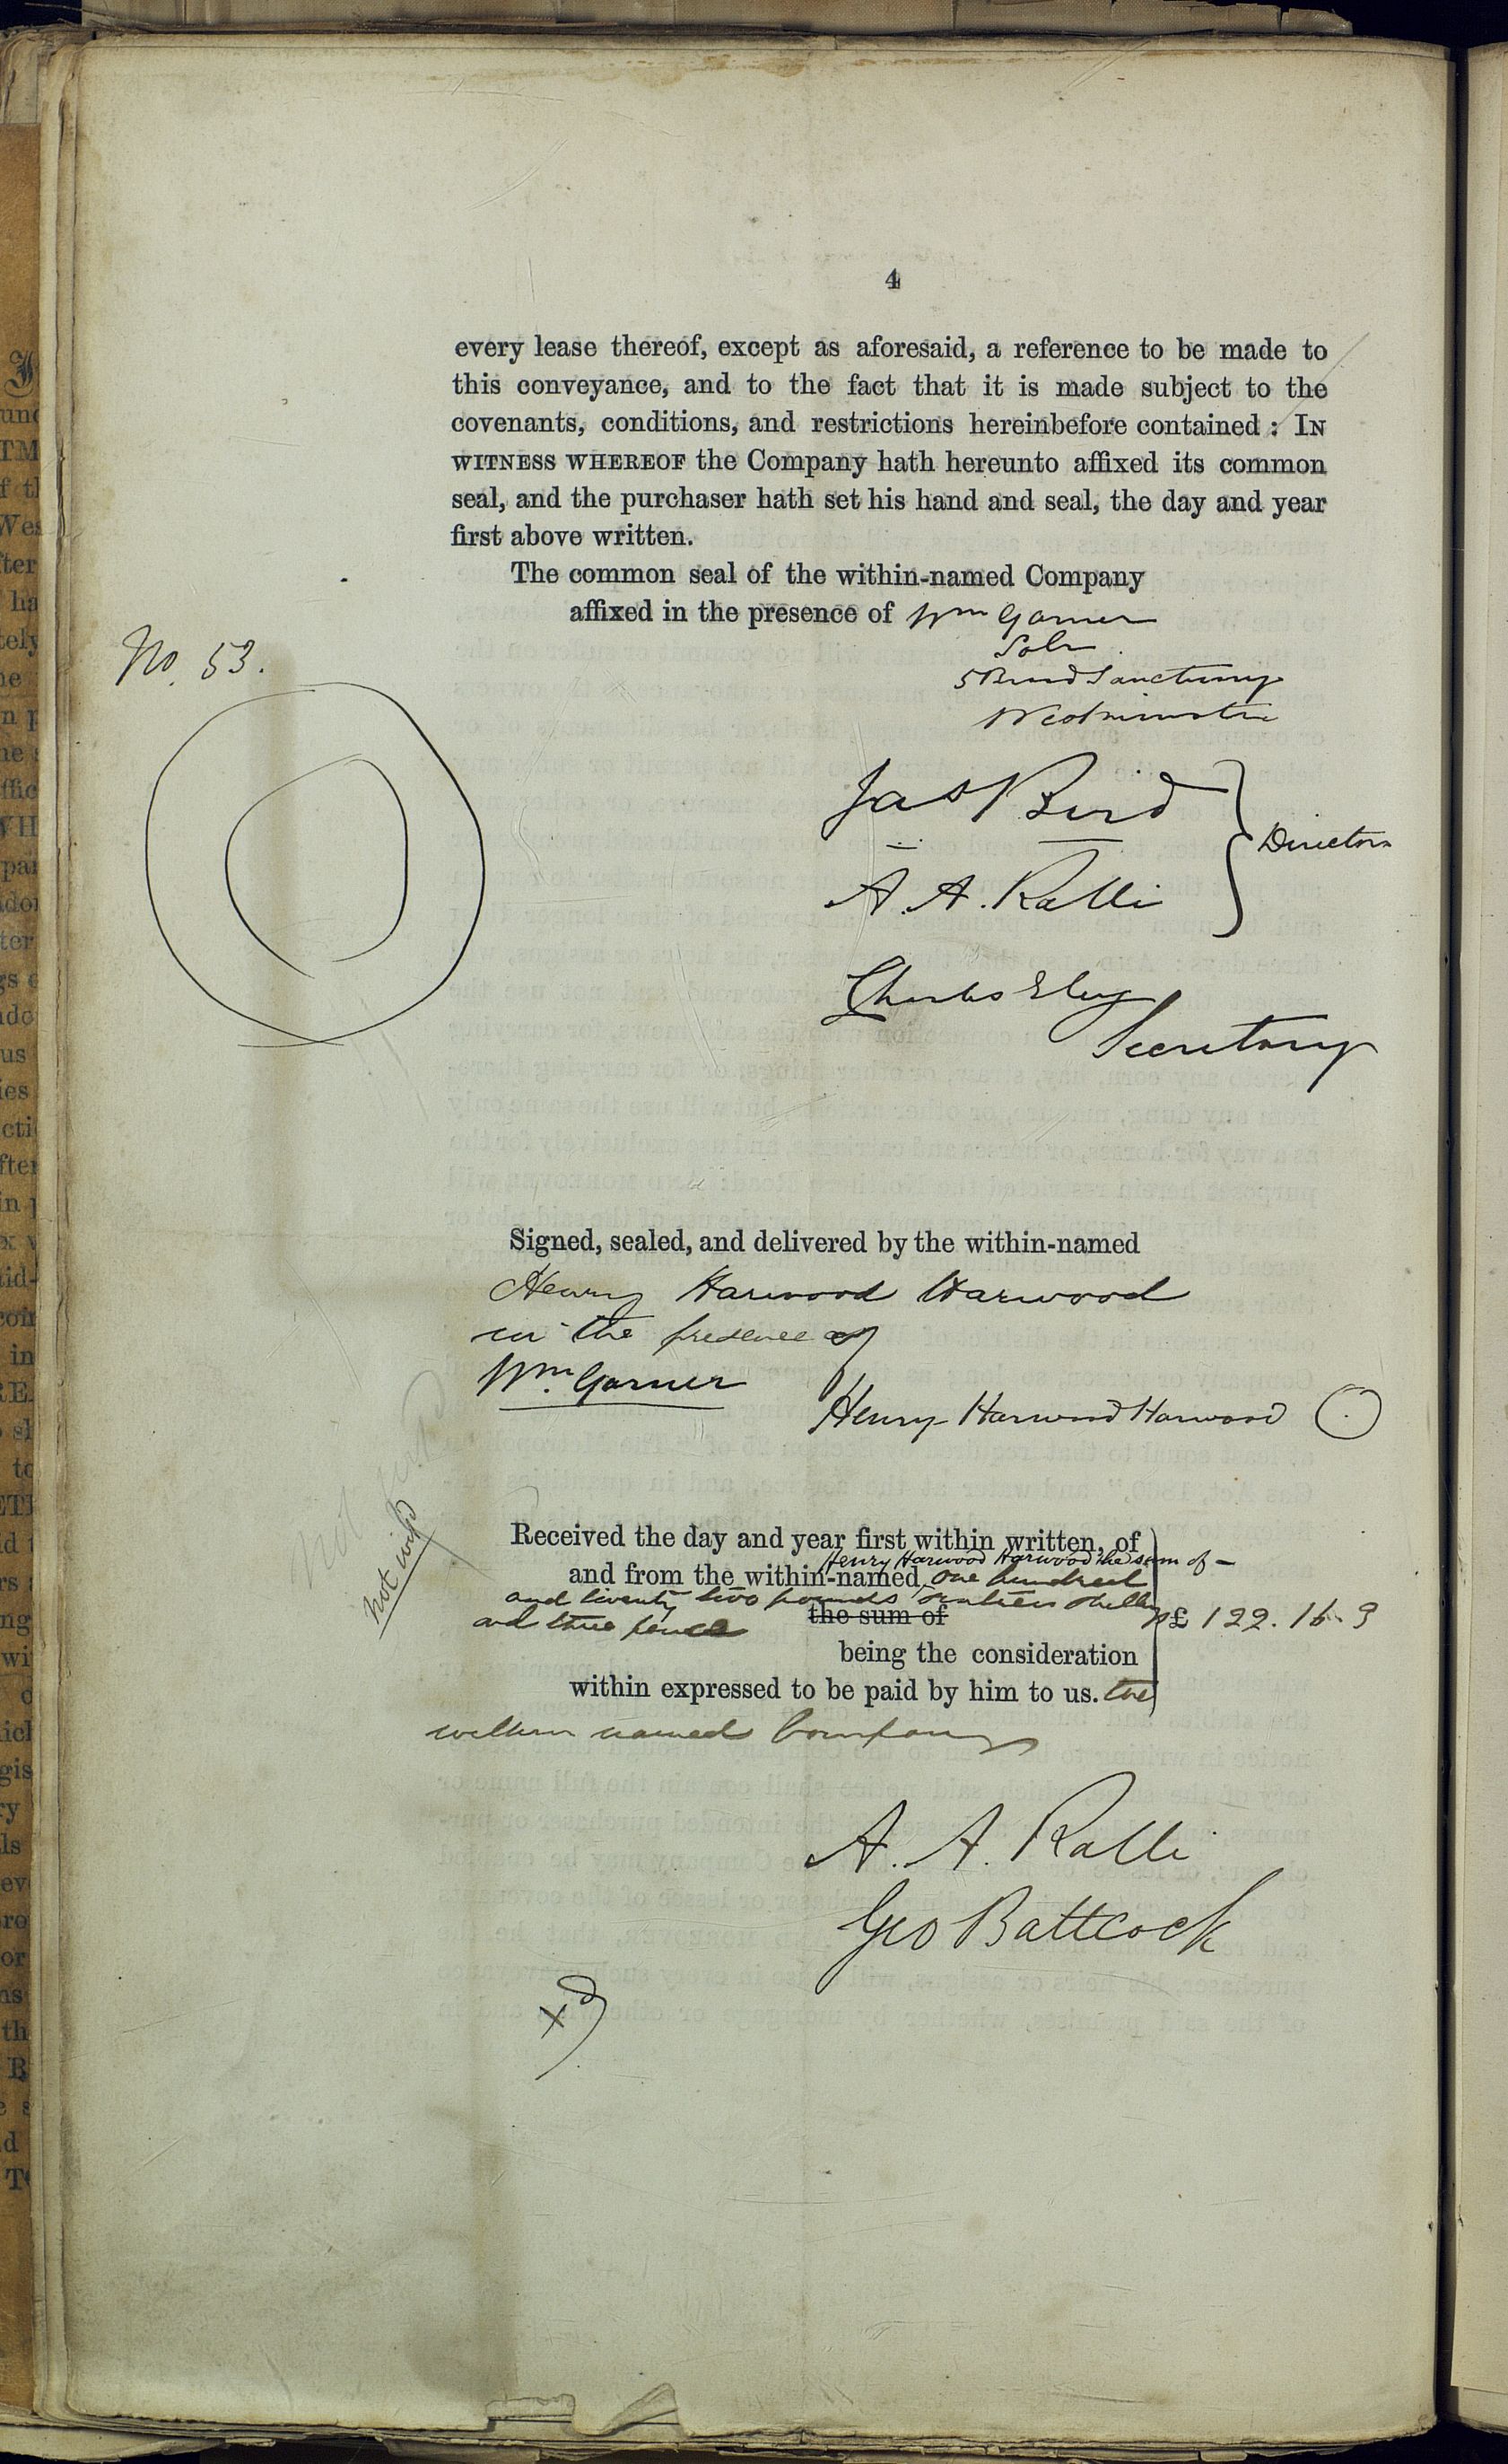 4
every lease thereof, except as aforesaid, a reference to be made to
this conveyance, and to the fact that it is made subject to the
covenants, conditions, and restrictions hereinbefore contained : IN
WITNESS WHEREOF the Company hath hereunto affixed its common
seal, and the purchaser hath set his hand and seal, the day and year
first above written.
The common seal of the within-named Company
affixed in the presence of Wm Garner
Solr
5 Broad Sanctuary
Westminster
No. 53.
Jas Bird
Directors
A. A. Ralli
Charles Eley
Secretary
Signed, sealed, and delivered by the within-named
Henry Harwood Harwood
in the presence of
Wm. Garner
Henry Harwood Harwood
not wit\d
Received the day and year first within written, of
Henry Harwood Harwood the sum of —
and from the within-named, one hundred
and twenty two pounds sixteen shillgs
and three pence the sum of £ 122. 16. 3
being the consideration
within expressed to be paid by him to us. the
within named Company
A. A. Ralli
Geo Battcock
xd